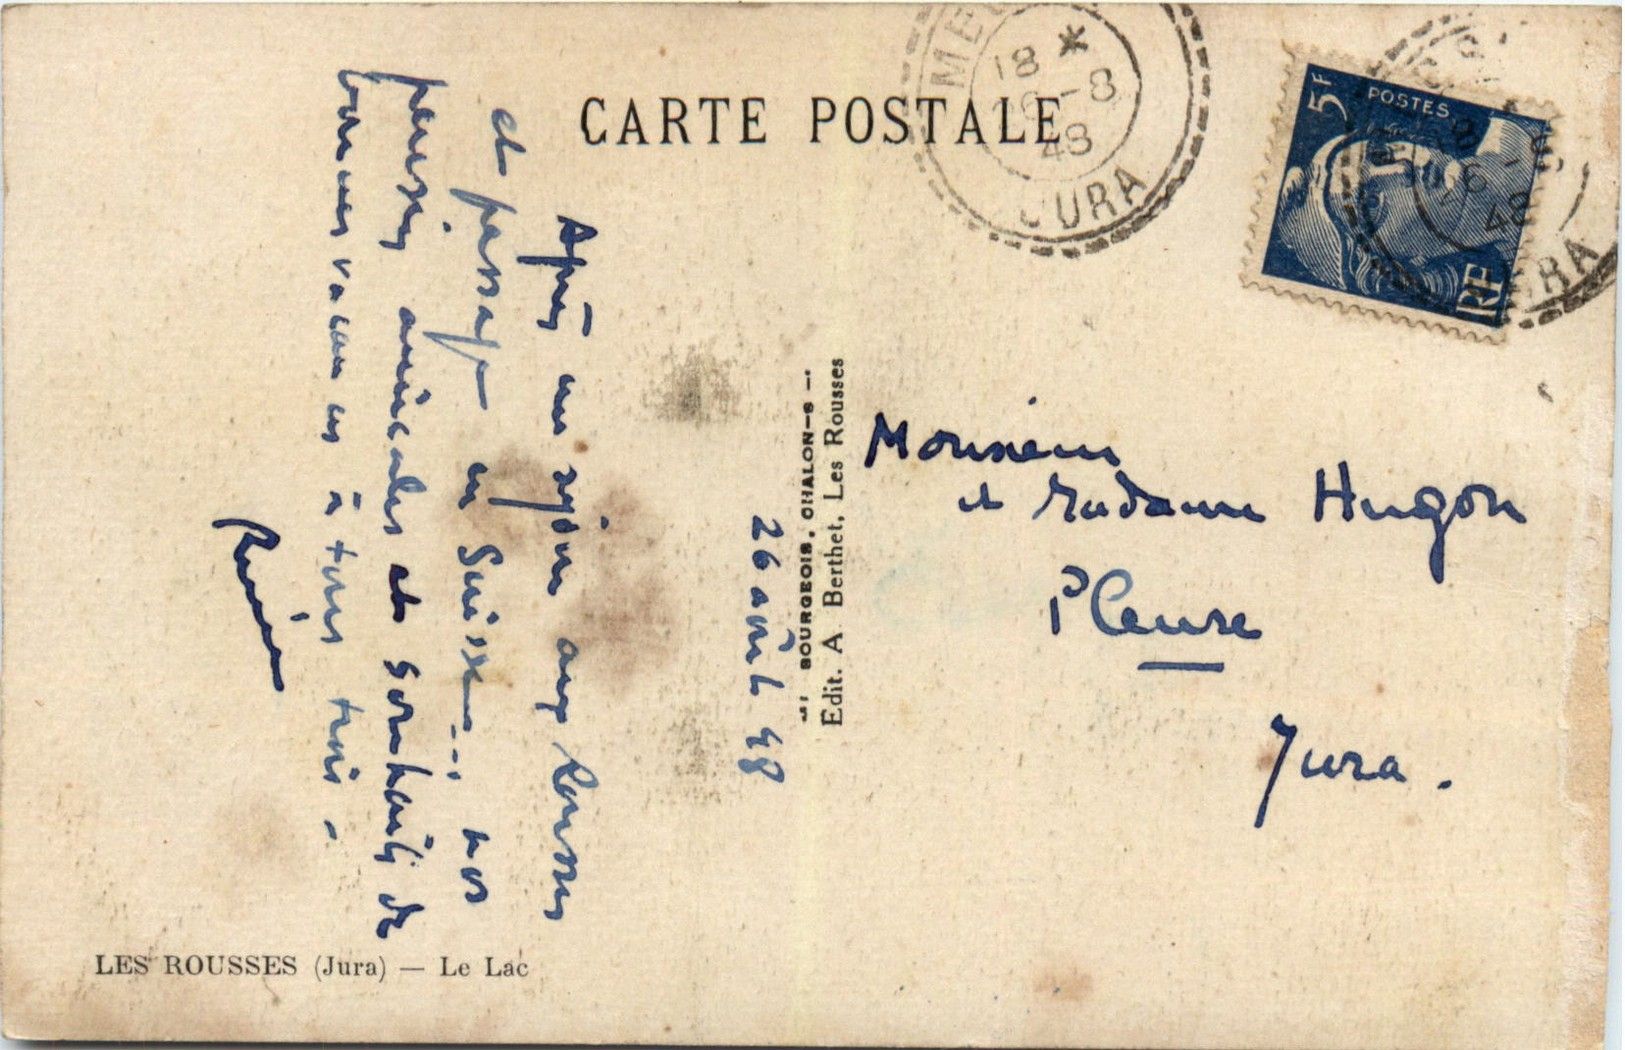 CARTE POSTALE
18 *
26 -8
48
JURA
5F
POSTES
RF
18
26 -8
48
JURA
26 août 48
Après un séjour aux Rousses
et passage en Suisse... nos
pensées amicales et souhaits de
bonnes vacances à tous trois.
BOURGEOIS, CHALON-S-
Edit. A Berthet, Les Rousses
Monsieur
et Madame Hugon
Pleure
Jura.
LES ROUSSES (Jura) — Le Lac